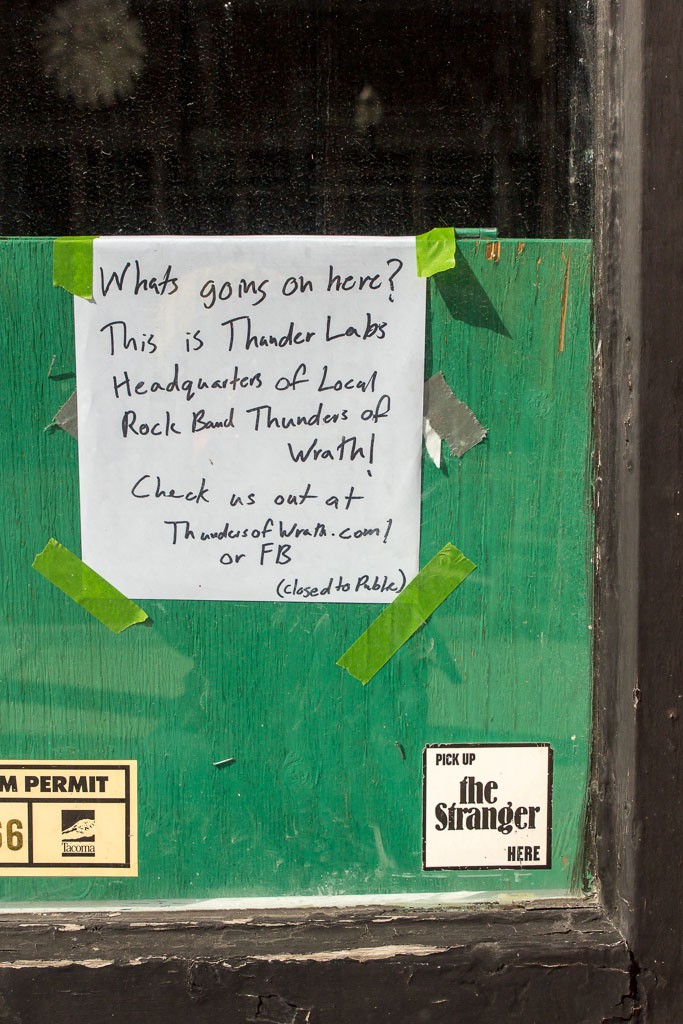 Whats going on here?
This is Thunder Labs
Headquarters of Local
Rock Band Thunders of
Wrath!
Check us out at
ThundersofWrath.com!
or FB
(closed to Public)
M PERMIT
66
Tacoma
PICK UP
the
Stranger
HERE